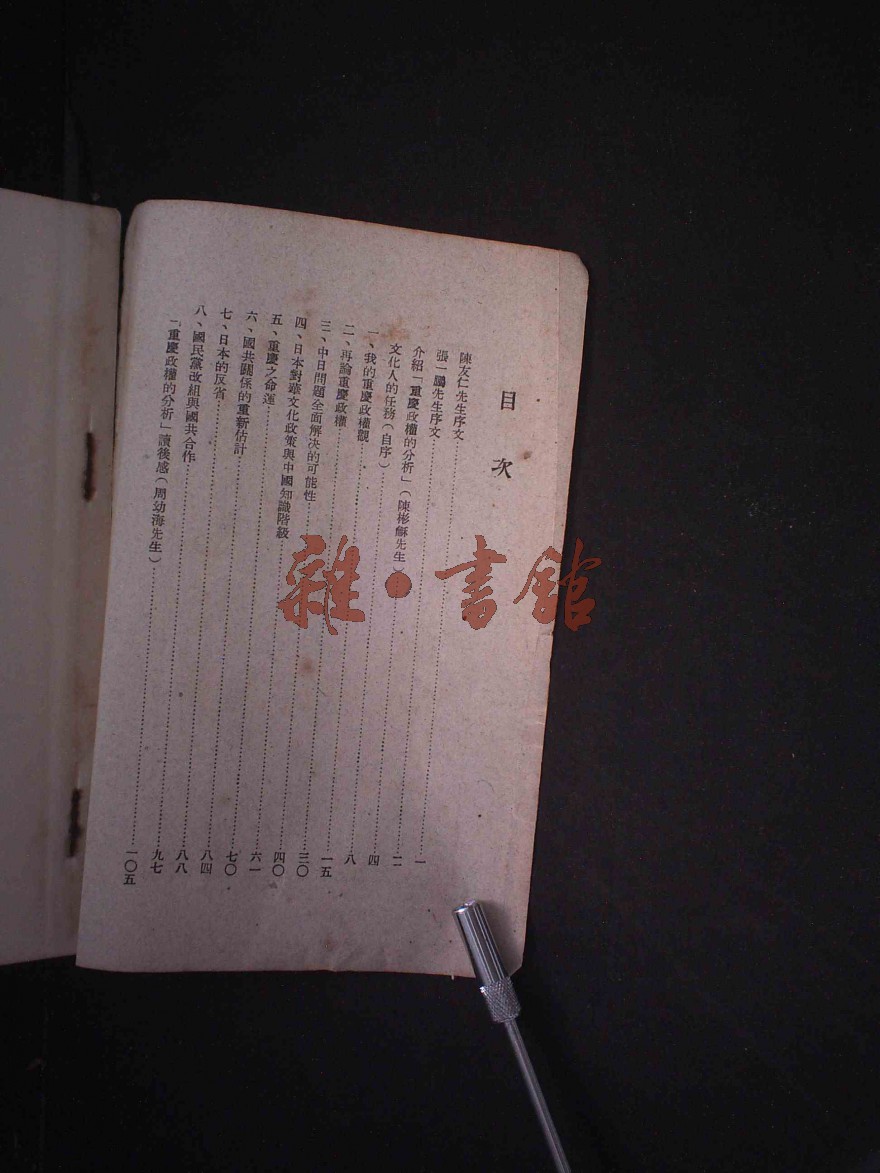 目次
陳友仁先生序文……一
張一鵬先生序文……二
介紹「重慶政權的分析」(陳彬龢先生)……四
文化人的任務(自序)……八
一、我的重慶政權觀……一五
二、再論重慶政權……三〇
三、中日問題全面解決的可能性……四〇
四、日本對華文化政策與中國知識階級……六一
五、重慶之命運……七〇
六、國共關係的重新估計……八四
七、日本的反省……八八
八、國民黨改組與國共合作……九七
「重慶政權的分析」讀後感(周幼海先生)……一〇五
雜·書館